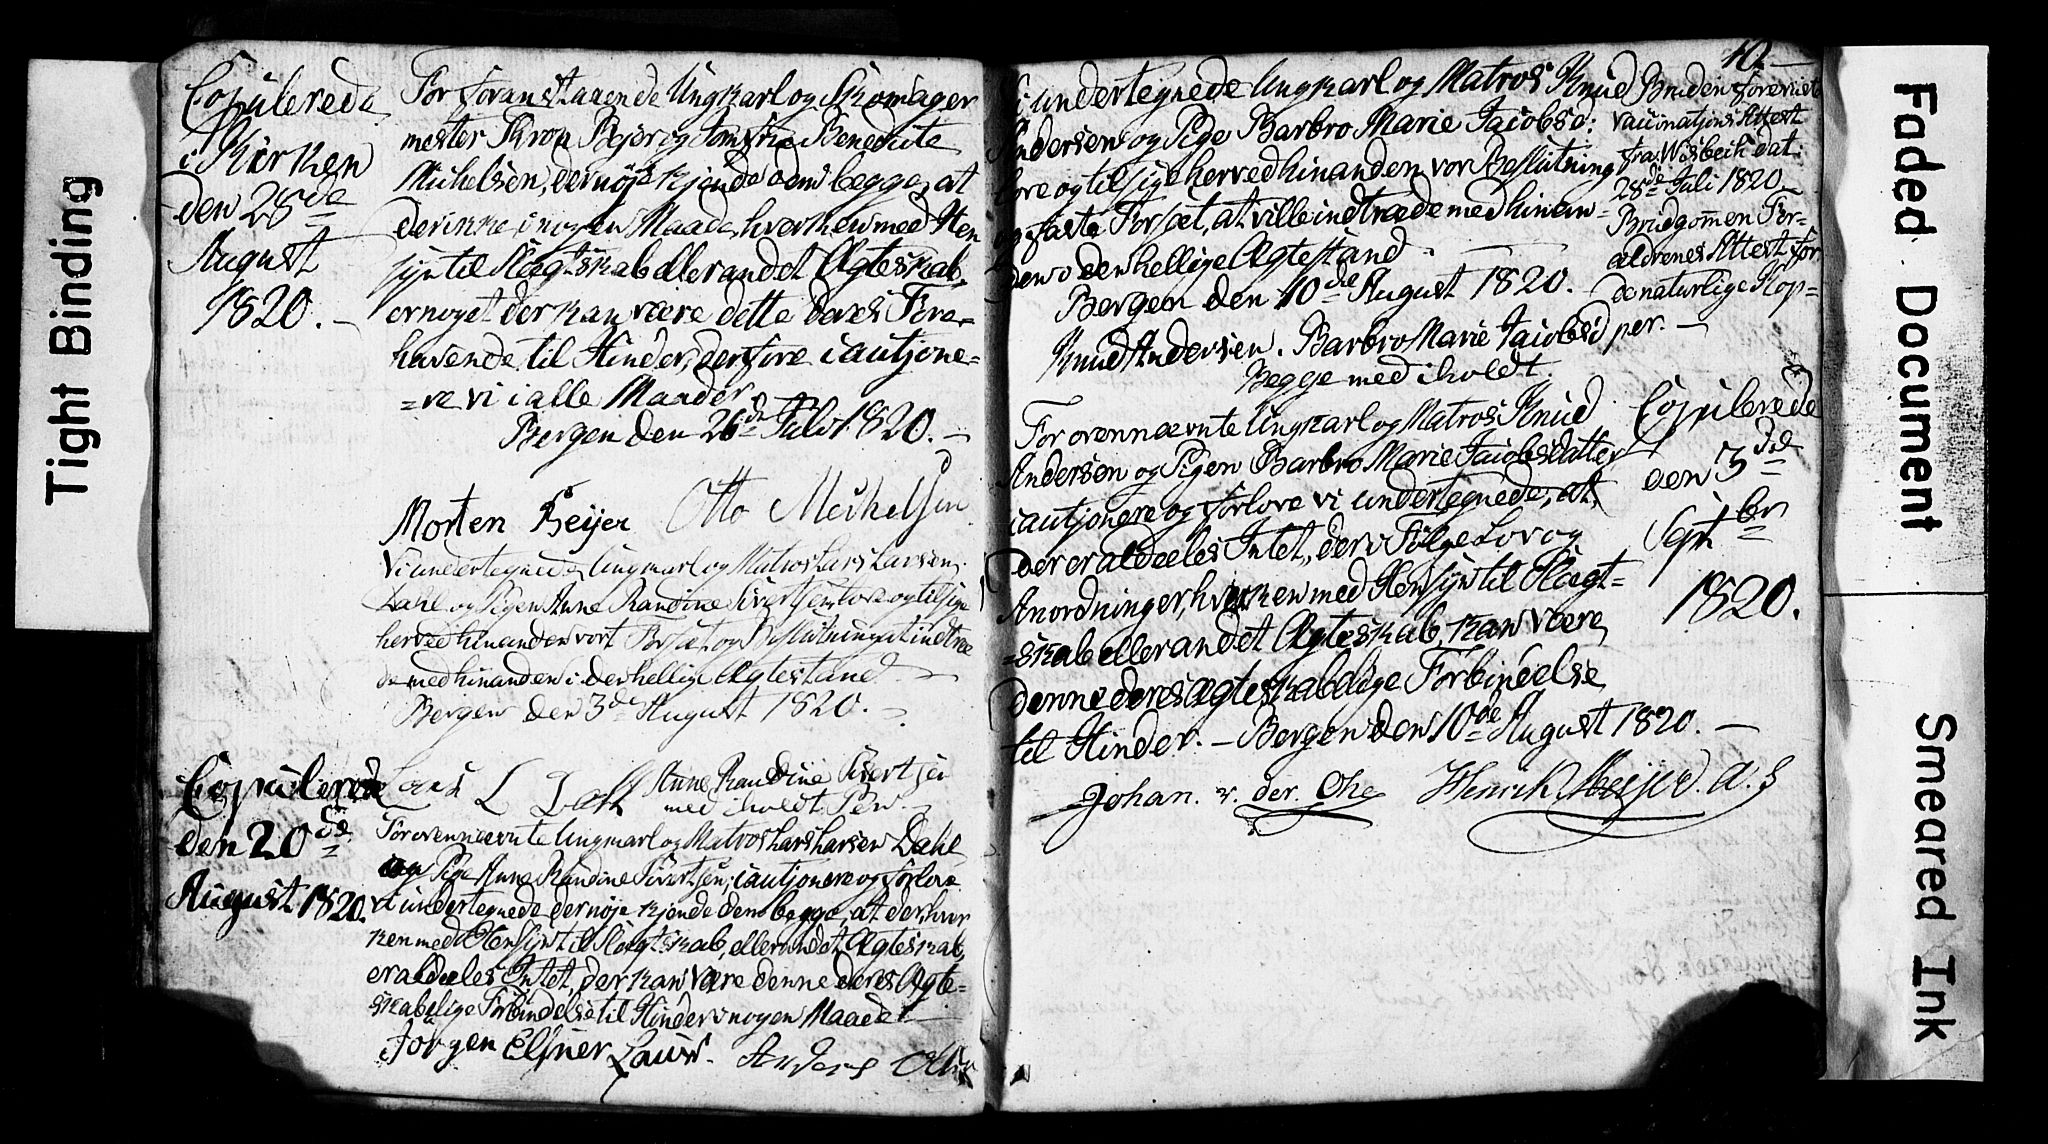 Tight Binding
Copulerede
i Kirken
den 28de
August
1820. –
For foranstaaende Ungkarl og Skomager
mester Kron Bejer og Jomfrue Benedicte
Michelsen, der nøje kjende dem begge, at
der ikke i nogen Maade, hverken med Hen
syn til Slægtskab eller andet Ægteskab,
er noget der kan være dette deres Fore-
havende til Hinder, derfore cautjone=
=re vi i alle Maader.
Bergen den 26de Juli 1820. –
Morten Beijer Otto Michelsen
Vi undertegnede Ungkarl og Matros Lars Larsen
Dahl og Pigen Anne Randine Sivertsen love og tilsige
herved hinanden vort Forsæt og Beslutning at indtræ
de med hinanden i den hellige Ægtestand. –
Bergen den 3de August 1820. –
Copulerede
den 20de
August 1820.
Lars L Dahl Anne Randine Sivertsen
med iholdt Pen.
For ovennævnte Ungkarl og Matros Lars Larsen Dahl
og Pige Anne Randine Sivertsen, cautjonere og forlove
vi undertegnede der nøje kjende dem begge, at der, hver
ken med Hensyn til Slægtskab, eller andet Ægteskab,
er aldeeles Intet, der kan være denne deres Ægte=
skabelige Forbindelse til Hinder i nogen Maade. –
Jørgen Elsner Anders
40. –
Vi undertegnede Ungkarl og Matros Knud
Andersen og Pige Barbro Marie Jacobsd:
love og tilsige herved hinanden vor Beslutning
og faste Forsæt, at ville indtræde med hinan=
den i den hellige Ægtestand. –
Bergen den 10de August 1820.
Knud Andersen. Barbro Marie Jacobsd
Begge med iholdt.
Bruden foreviiste
Vaccinatjons Attest
fra Wisbech dat.
28de Juli 1820. –
Brudgommen For-
ældrenes Attest for
de naturlige Kop=
per. –
For ovennævnte Ungkarl og Matros Knud
Andersen og Pigen Barbro Marie Jacobsdatter
cautjonere og forlove vi undertegnede, at
der er aldeeles Intet, der i Følge Lov og
Anordninger, hverken med Hensyn til Slægt=
=skab eller andet Ægteskab, kan være
denne deres ægteskabelige Forbindelse
til Hinder. – Bergen den 10de August 1820. –
Johan. v. der. Ohe Henrich Meijer
Copulerede
den 3die
Septbr
1820.
Faded Document
Smeared Ink